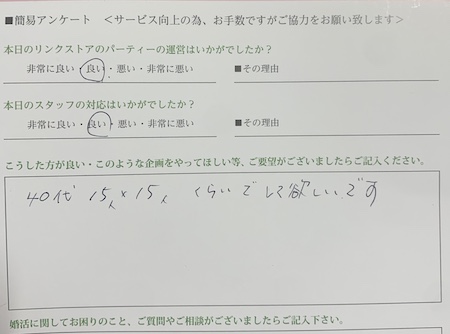 ■簡易アンケート　＜サービス向上の為、お手数ですがご協力をお願い致します＞
本日のリンクストアのパーティーの運営はいかがでしたか？
非常に良い・良い・悪い・非常に悪い　■その理由
本日のスタッフの対応はいかがでしたか？
非常に良い・良い・悪い・非常に悪い　■その理由
こうした方が良い・このような企画をやってほしい等、ご要望がございましたらご記入ください。
40代 15人×15人 くらいでして欲しいです
婚活に関してお困りのこと、ご質問やご相談がございましたらご記入下さい。